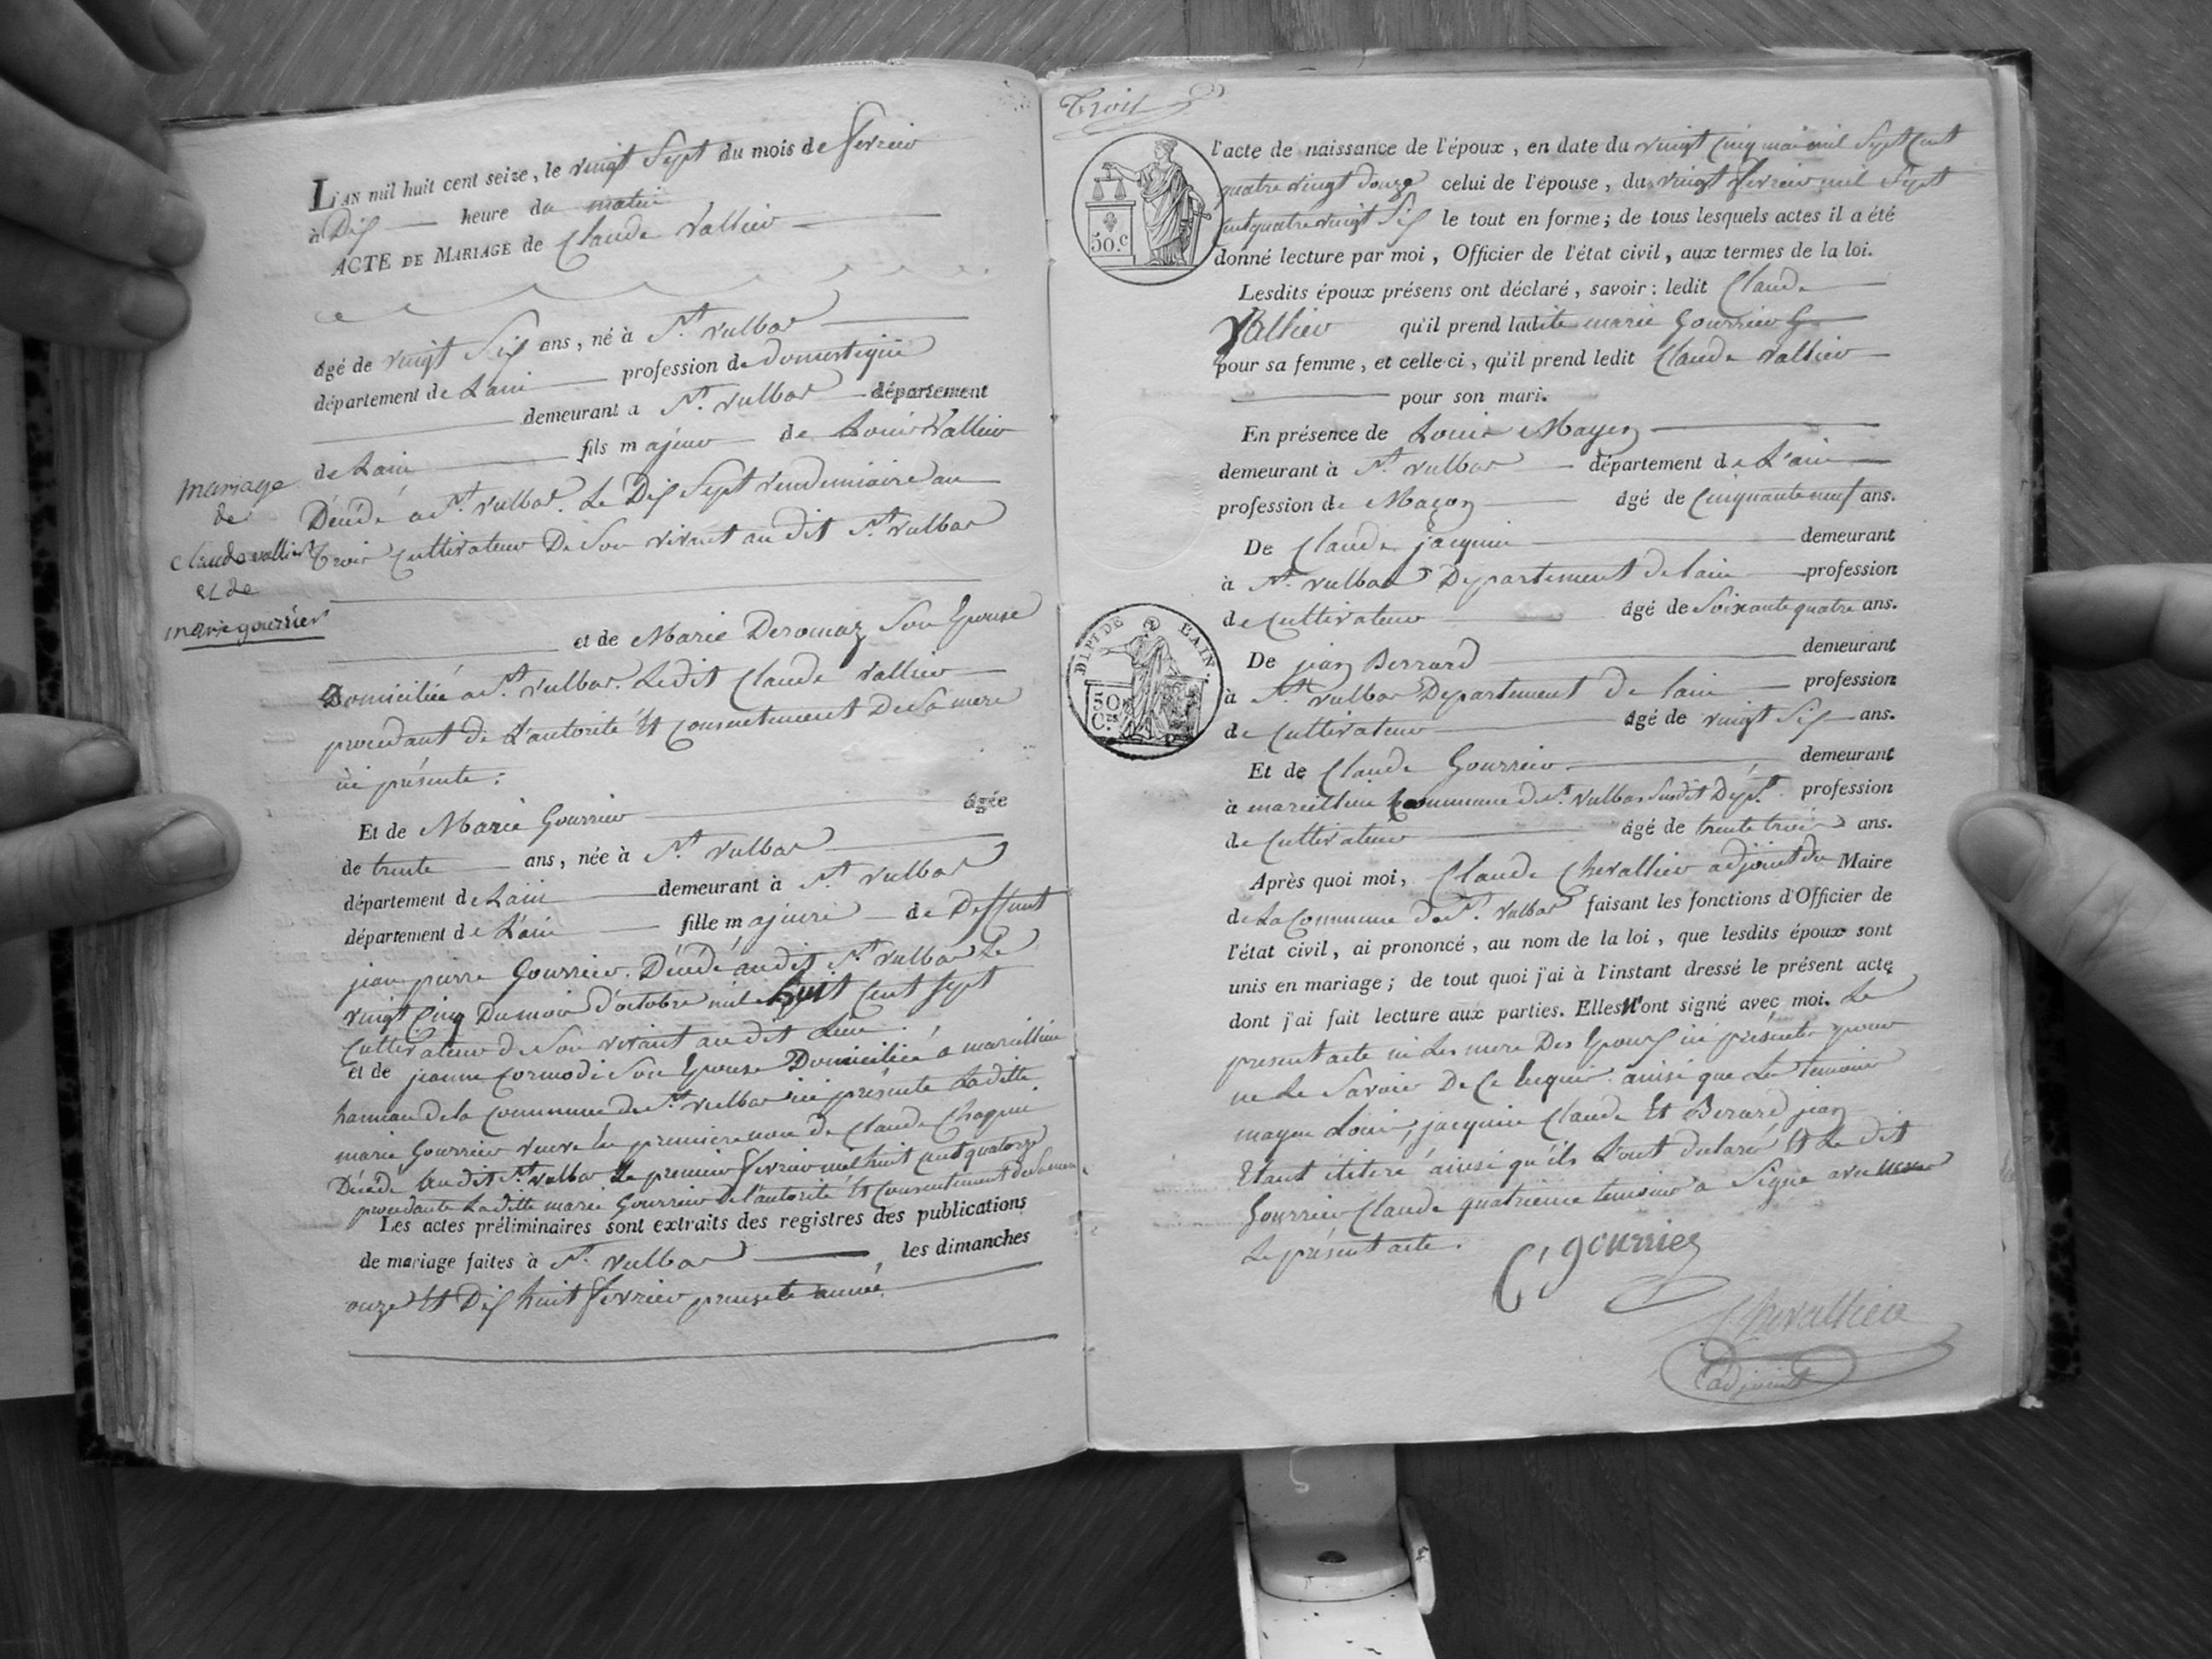 L'AN mil huit cent seize, le vingt Sept du mois de fevrier
à Dix heure du matin
ACTE DE MARIAGE de Claude Vallier
âgé de vingt Six ans, né à St. Vulbas
département de Lain profession de domestique
demeurant a St. Vulbas département
de Lain fils majeur de Louis Vallier
Mariage
de
Claude vallier
et de
marie gourrier
Décédé a St. Vulbas. Le Dix Sept Vendemiaire an
Trois Cultivateur De Son vivant au dit St. Vulbas
et de Marie Deromaz Son Epouse
Domiciliée a St. Vulbas. Ledit Claude Vallier
procedant de L'autorité Et Consentement De Sa mere
ici présente :
Et de Marie Gourrier âgée
de trente ans, née à St. Vulbas
département de Lain demeurant à St. Vulbas
département de L'ain fille majeure de Deffunt
jean pierre Gourrier. Décédé audit St. Vulbas Le
vingt Cinq Du mois d'octobre mil huit Cent Sept
Cultivateur de Son vivant au dit Lieu.
et de jeanne Cormode Son Epouse Domiciliée a marcillieu
hameau de la Commune de St. Vulbas ici présente Ladite
marie Gourrier veuve en premiere noce de Claude Chagnu
Décédé Au dit St. Vulbas Le premier fevrier mil huit Cent quatorze
procedante Ladite marie Gourrier de l'autorité Et Consentement de Sa mere
Les actes préliminaires sont extraits des registres des publications
de mariage faites à St. Vulbas les dimanches
onze Et Dix huit fevrier presente année
Trois
l'acte de naissance de l'époux, en date du vingt Cinq mai mil Sept Cent
quatre vingt douze celui de l'épouse, du vingt fevrier mil Sept
Cent quatre vingt Six le tout en forme; de tous lesquels actes il a été
50.c
donné lecture par moi, Officier de l'état civil, aux termes de la loi.
Lesdits époux présens ont déclaré, savoir : ledit Claude
Vallier qu'il prend ladite marie Gourrier
pour sa femme, et celle-ci, qu'il prend ledit Claude Vallier
pour son mari.
En présence de Louis Mayen
demeurant à St. Vulbas département de L'ain
profession de Maçon âgé de Cinquante neuf ans.
De Claude jacquin demeurant
à St. Vulbas Departement de lain profession
de Cultivateur âgé de Soixante quatre ans.
DEPT DE L'AIN.
50 Ces.
De jean Berrard demeurant
à St. Vulbas Departement De lain profession
de Cultivateur âgé de vingt Six ans.
Et de Claude Gourrier demeurant
à marcillieu Commune de St. Vulbas Susdit Dépt. profession
de Cultivateur âgé de trente trois ans.
Après quoi moi, Claude Chevallier adjoint du Maire
de La Commune de St. Vulbas faisant les fonctions d'Officier de
l'état civil, ai prononcé, au nom de la loi, que lesdits époux sont
unis en mariage; de tout quoi j'ai à l'instant dressé le présent acte
dont j'ai fait lecture aux parties. Elles N'ont signé avec moi. Le
present acte ni Les mere Des Epoux ici présente pour
ne Le Savoir De Ce Enquis. ainsi que Les temoins
mayen Louis, jacquin Claude Et Berard jean
Etant ititeré ainsi qu'ils L'ont declaré Et Le dit
Gourrier Claude quatrieme temoin a Signé avec nous
Le présent acte.
C, gourrier
Chevallier
adjoint